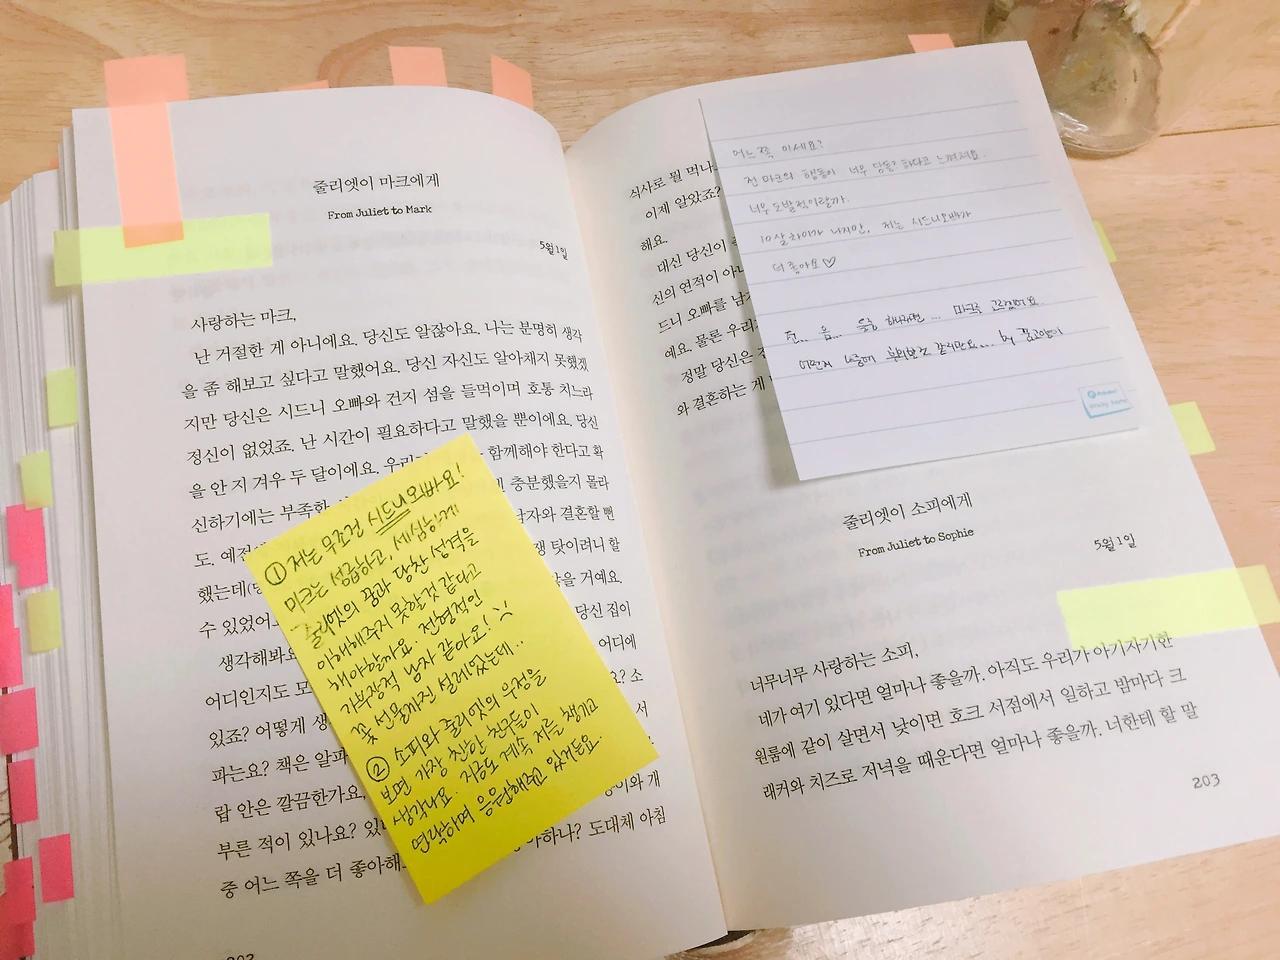 줄리엣이 마크에게
From Juliet to Mark
5월 1일
사랑하는 마크,
난 거절한 게 아니에요. 당신도 알잖아요. 나는 분명히 생각
을 좀 해보고 싶다고 말했어요. 당신 자신도 알아채지 못했겠
지만 당신은 시드니 오빠와 건지 섬을 들먹이며 호통 치느라
정신이 없었죠. 난 시간이 필요하다고 말했을 뿐이에요. 당신
을 안 지 겨우 두 달이에요. 함께해야 한다고 확
신하기에는 부족한 충분했을지 몰라
도. 남자와 결혼할 뻔
했는데 탓이려니 할
수 있었어 거예요.
생각해봐요 당신 집이
어디인지도 모 어디에
있죠? 어떻게 소
파는요? 책은 알파 서
랍 안은 깔끔한가요,
부른 적이 있나요? 와 개
중 어느 쪽을 더 좋아해 하나? 도대체 아침
① 저는 무조건 시드니오빠요!
마크는 성급하고, 세심하게
줄리엣의 꿈과 당찬 성격을
이해해주지 못할것 같다고
해야할까요. 전형적인
가부장적 남자 같아요!
꽃 선물까진 설레었는데..
② 소피와 줄리엣의 우정을
보면 가장 친한 친구들이
생각나요. 지금도 계속 저를 챙기고
연락하며 응원해주고 있거든요.
식사로 뭘 먹나
이제 알았죠?
해요.
대신 당신이
신의 연적이 아니
드니 오빠를 남
예요. 물론 우리
정말 당신은
와 결혼하는 게
어느쪽 이세요?
전 마크의 행동이 너무 당동? 하다고 느껴져요.
너무 도발적이랄까.
10살 차이가 나지만, 저는 시드니오빠가
더 좋아요♡
음... 마크로 고르겠어요.
어쩐지 by
줄리엣이 소피에게
From Juliet to Sophie
5월 1일
너무너무 사랑하는 소피,
네가 여기 있다면 얼마나 좋을까. 아직도 우리가 아기자기한
원룸에 같이 살면서 낮이면 호크 서점에서 일하고 밤마다 크
래커와 치즈로 저녁을 때운다면 얼마나 좋을까. 너한테 할 말
203